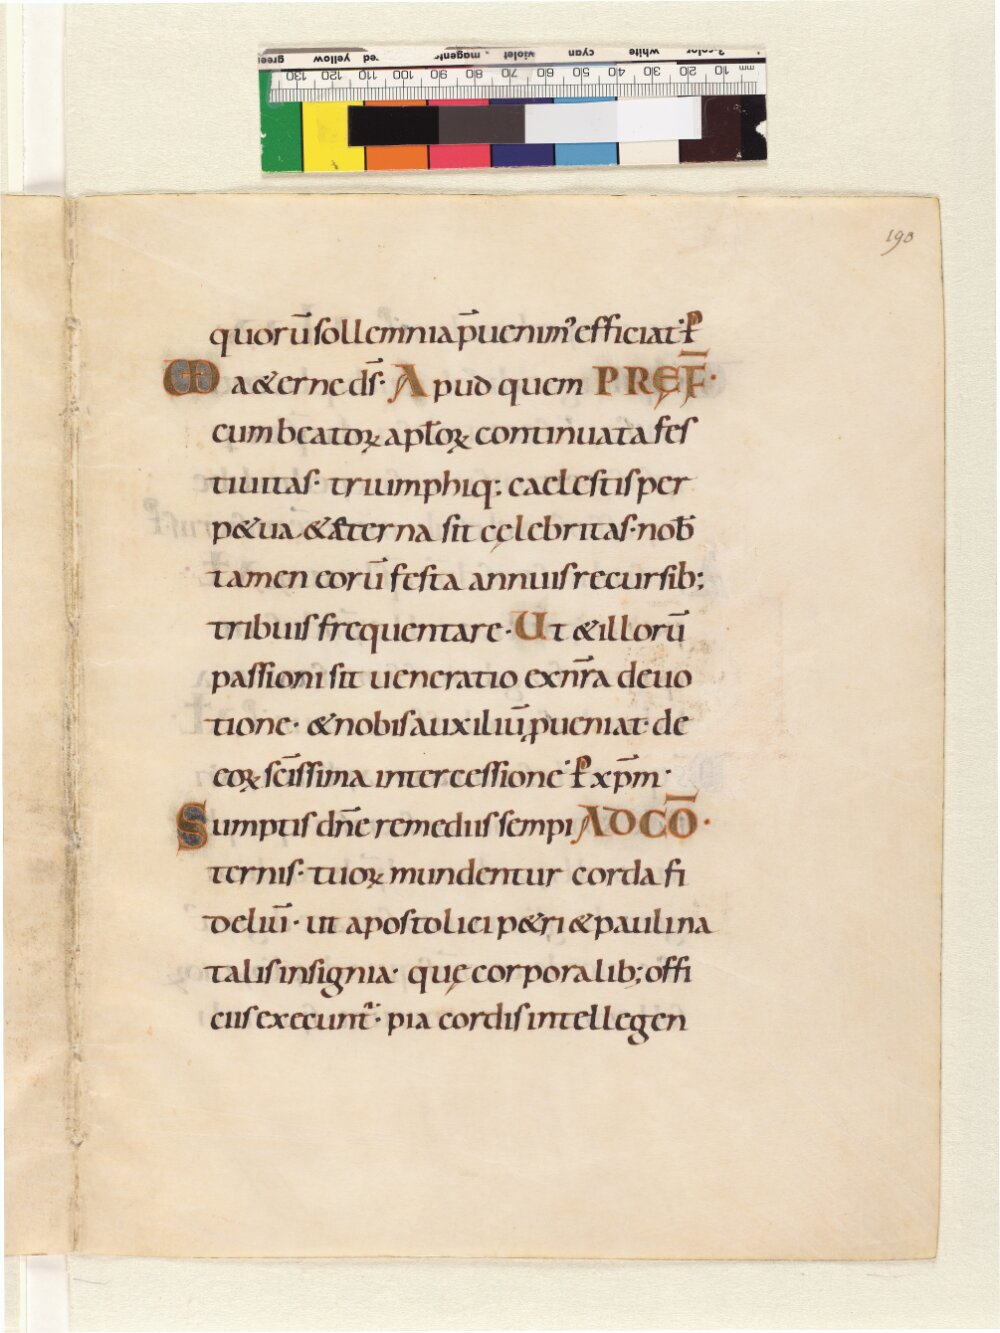 green yellow red magenta violet cyan white 3-color
130 120 110 100 90 80 70 60 50 40 30 20 10 mm
190
quorū sollemnia p̄uenim᾽ efficiat· P̱
Ma &erne ds̄· Apud quem PREF̄·
cum beatoꝝ aptōꝝ continuata fes
tiuitas· triumphiq; caelestis per
p&ua &aeterna sit cęlebritas· nob̄
tamen eorū festa annuis recursib;
tribuis frequentare· Ut & illorū
passioni sit ueneratio ex nr̄a deuo
tione· & nobis auxiliū ꝓueniat· de
eoꝝ sc̄issima intercessione· P̱ xp̄m·
Sumptis dn̄e remediis sempi AD CŌ·
ternis· tuoꝝ mundentur corda fi
deliū· ut apostolici p&ri & pauli na
talis insignia· quę corporalib; offi
ciis execunt᾽· pia cordis intellegen